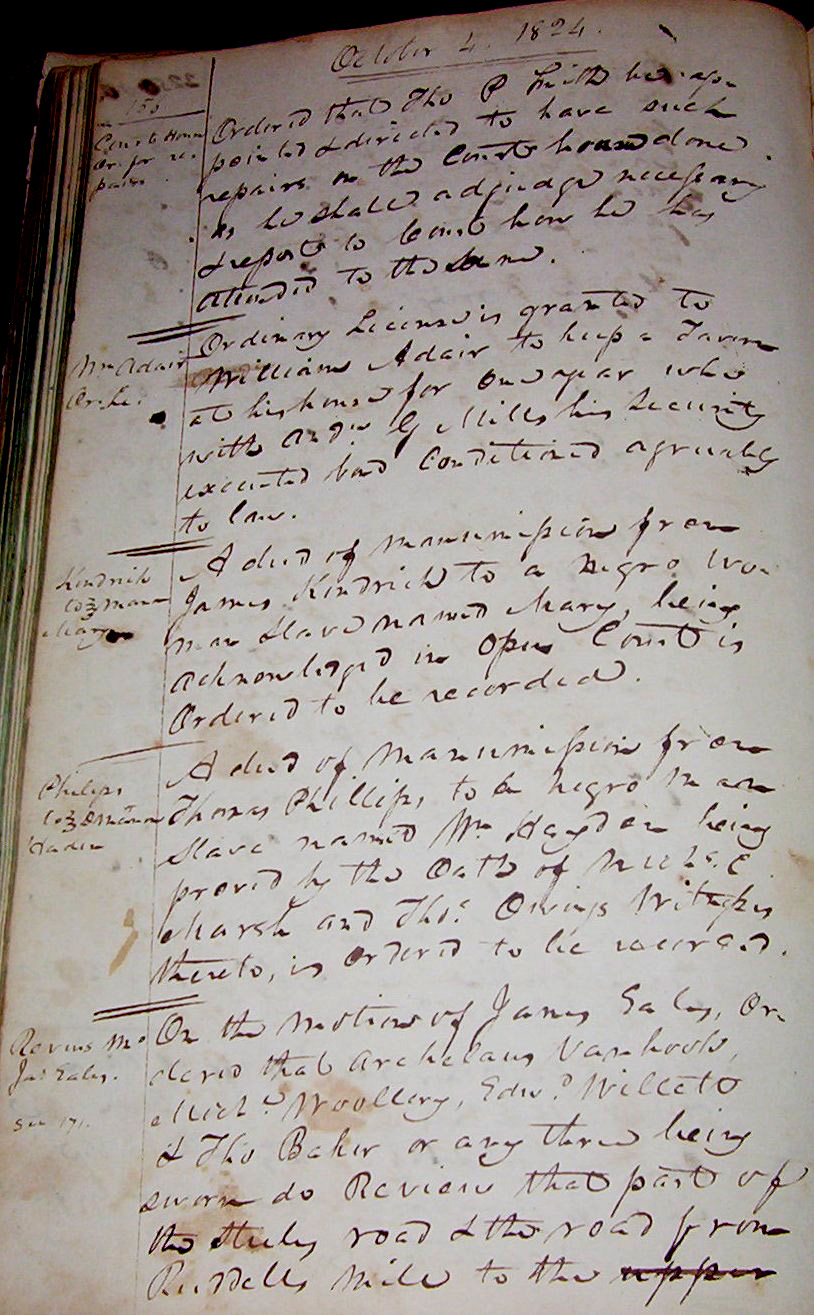 October 4. 1824.
150
Court House
Or. for re=
pairs
Ordered that Tho P Smith be ap=
pointed & directed to have such
repairs on the Court house done
as he shall adjudge necessary
& report to Court how he has
attended to the same.
Wm Adair
Or. Li.
Ordinary License is granted to
William Adair to keep a Tavern
at his house for one year who
with Andw G Mills his Security
executed bond Conditioned agreeably
to law.
Kendrick
to Deed Man
Mary
A deed of manumission from
James Kendrick to a negro Wo=
man Slave named Mary, being
acknowledged in Open Court is
Ordered to be recorded.
Philips
Haden
A deed of Manumission from
Thomas Phillips to a negro Man
Slave named Wm Hayden being
proved by the Oath of
Marsh and Thos. Owings Witness
thereto, is Ordered to be recorded.
Review Mo
Jas Eales.
See 171.
On the Motion of James Eales, Or=
dered that Archelaus Vanhook,
Michl Woollery, Edwd. Willett
& Tho Baker or any three being
sworn do Review that part of
the road & the road from
Ruddells Mill to the upper